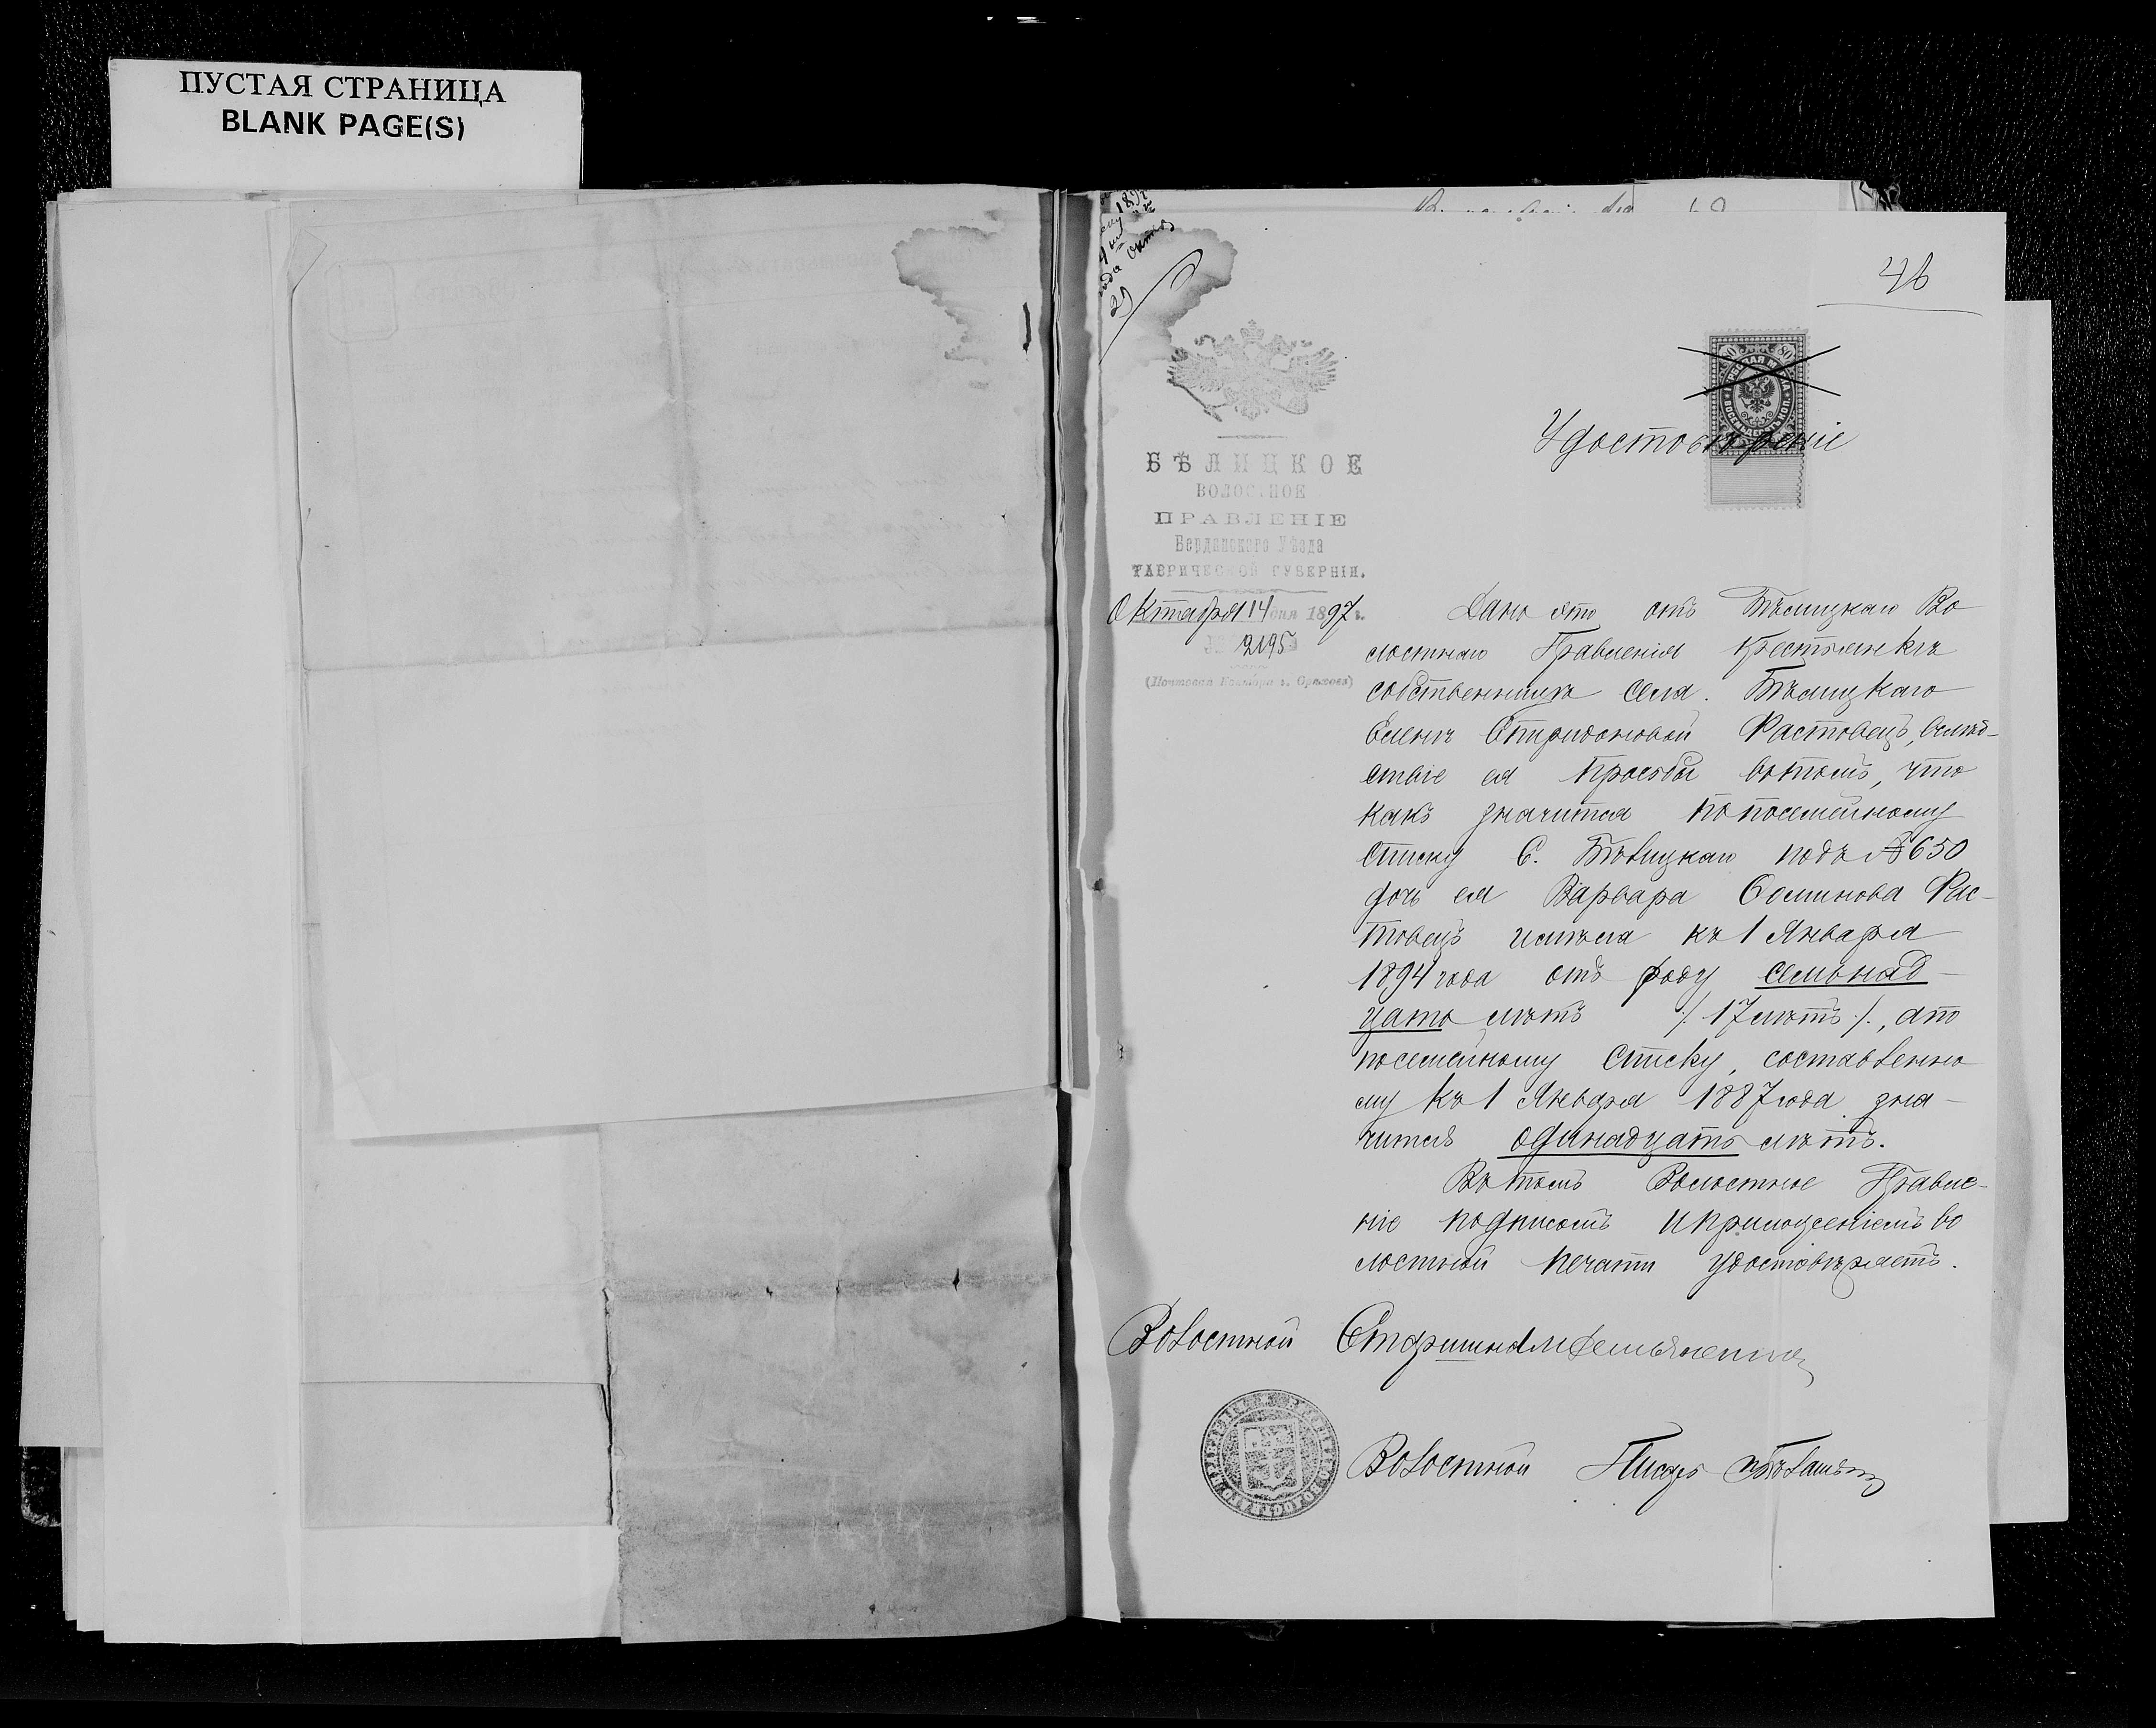 ПУСТАЯ СТРАНИЦА
BLANK PAGE(S)
46
БѢЛИЦКОЕ
ВОЛОСТНОЕ
ПРАВЛЕНІЕ
Бердянскаго Уѣзда
ТАВРИЧЕСКОЙ ГУБЕРНІИ.
Октября 14 дня 1897 г.
№ 2195
(Почтовая Контора г. Орѣховъ)
Удостовѣреніе
Дано это отъ Бѣлицкаго Во
лостнаго Правленія крестьянкѣ
собственницѣ села Бѣлицкаго
Еленѣ Спиридоновой Растовецъ, вслѣд-
ствіе ея просьбы вътомъ, что
какъ значится попосемейному
списку С. Бѣлицкаго подъ № 650
дочь ея Варвара Рас-
товецъ имѣла къ 1 Января
1894 года отъ роду семьнад-
цать лѣтъ /. 17 лѣтъ ./, апо
посемейному списку, составленно
му къ 1 Января 1887 года зна-
чится одинадцать лѣтъ.
Вътомъ Волостное Правле-
ніе подписомъ иприложеніемъ во
лостной печати удостовѣряетъ.
Волостной Старшина
Волостной Писарь